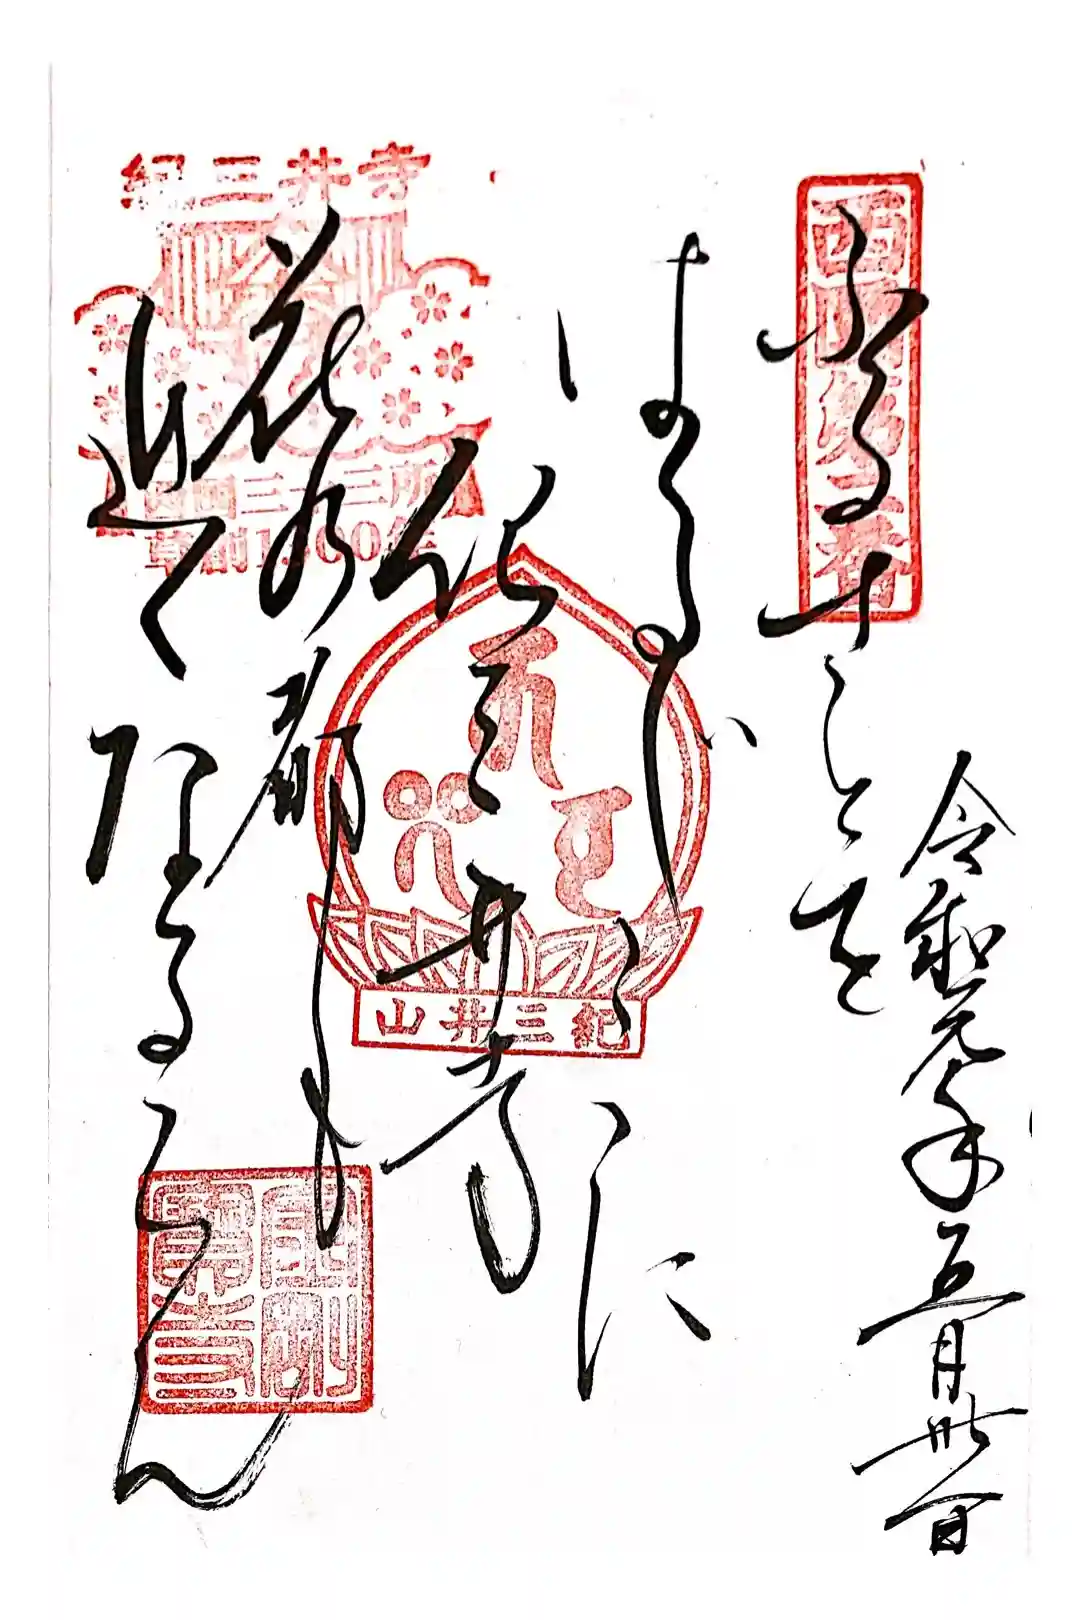 西国第二番
ふるさとを
はる〲こゝに
紀三井寺
花の都も
近くなるらん
令和元年五月
紀三井寺
西国三十三所
草創1300年
紀三井山
金剛寳寺